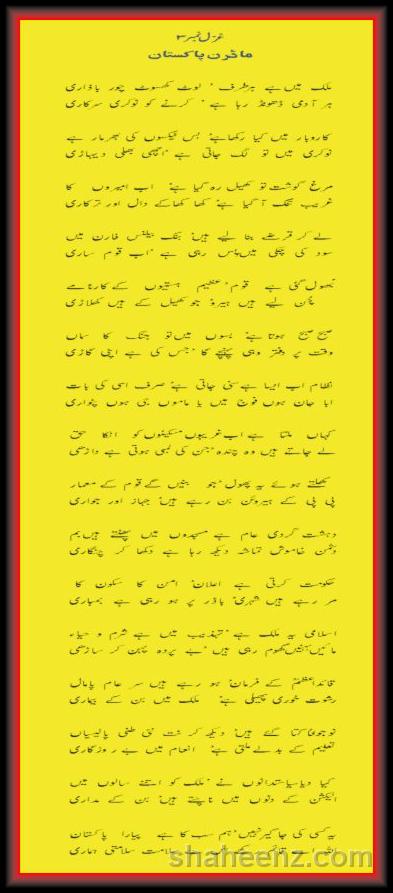 غزل نمبر ۳
ماڈرن پاکستان
ملک میں ہے ہر طرف لوٹ کھسوٹ چور بازاری
ہر آدمی ڈھونڈ رہا ہے کرنے کو نوکری سرکاری
کاروبار میں کیا رکھا ہے بس ٹیکسوں کی بھرمار ہے
نوکری میں تو لگ جاتی ہے اچھی بھلی دیہاڑی
مرغ گوشت تو کھیل رہ گیا ہے اب امیروں کا
غریب تنگ آ گیا ہے کھا کھا کے دال اور ترکاری
لے کر قرضے بنا لیے ہیں بنک بیلنس فارن میں
سود کی چکی میں پس رہی ہے اب قوم ساری
بھول گئی ہے قوم عظیم ہستیوں کے کارنامے
چن لیے ہیں ہیرو جو کھیل کے ہیں کھلاڑی
صبح صبح ہوتا ہے بسوں میں تو جنگ کا ساں
وقت پر دفتر وہی پہنچے گا جس کی ہے اپنی گاڑی
نظام اب ایسا ہے سنی جاتی ہے صرف اسی کی بات
ابا جان ہوں فوج میں یا ماموں جی ہوں پٹواری
کہاں ملتا ہے اب غریبوں مسکینوں کو انکا حق
لے جاتے ہیں وہ چندہ جن کی لمبی ہوتی ہے داڑھی
کھلتے ہوئے یہ پھول جو بنیں گے قوم کے معمار
پی پی کے ہیروئن بن رہے ہیں جہاز اور جواری
دہشت گردی عام ہے مسجدوں میں پھٹتے ہیں بم
دشمن خاموش تماشہ دیکھ رہا ہے دکھا کر چنگاری
حکومت کرتی ہے اعلان امن کا سکون کا
مر رہے ہیں شہری باڈر پر ہو رہی ہے بمباری
اسلامی یہ ملک ہے تہذیب میں ہے شرم و حیاء
مائیں بہنیں گھوم رہی ہیں بے پردہ پہن کر ساڑھی
قائداعظم کے فرمان ہو رہے ہیں سر عام پامال
رشوت خوری پھیلی ہے ملک میں بن کے بیماری
نوجواں اکتا گئے ہیں دیکھ کر نت نئی پالیسیاں
تعلیم کے بدلے ملتی ہے انعام میں بے روزگاری
کیا دیا سیاستدانوں نے ملک کو اتنے سالوں میں
الیکشن کے دنوں میں ناچتے ہیں بن کے مداری
یہ کسی کی جاگیر نہیں ہم سب کا ہے پیارا پاکستان
اللہ اسے سلامت سلامتی ہماری
shaheenz.com